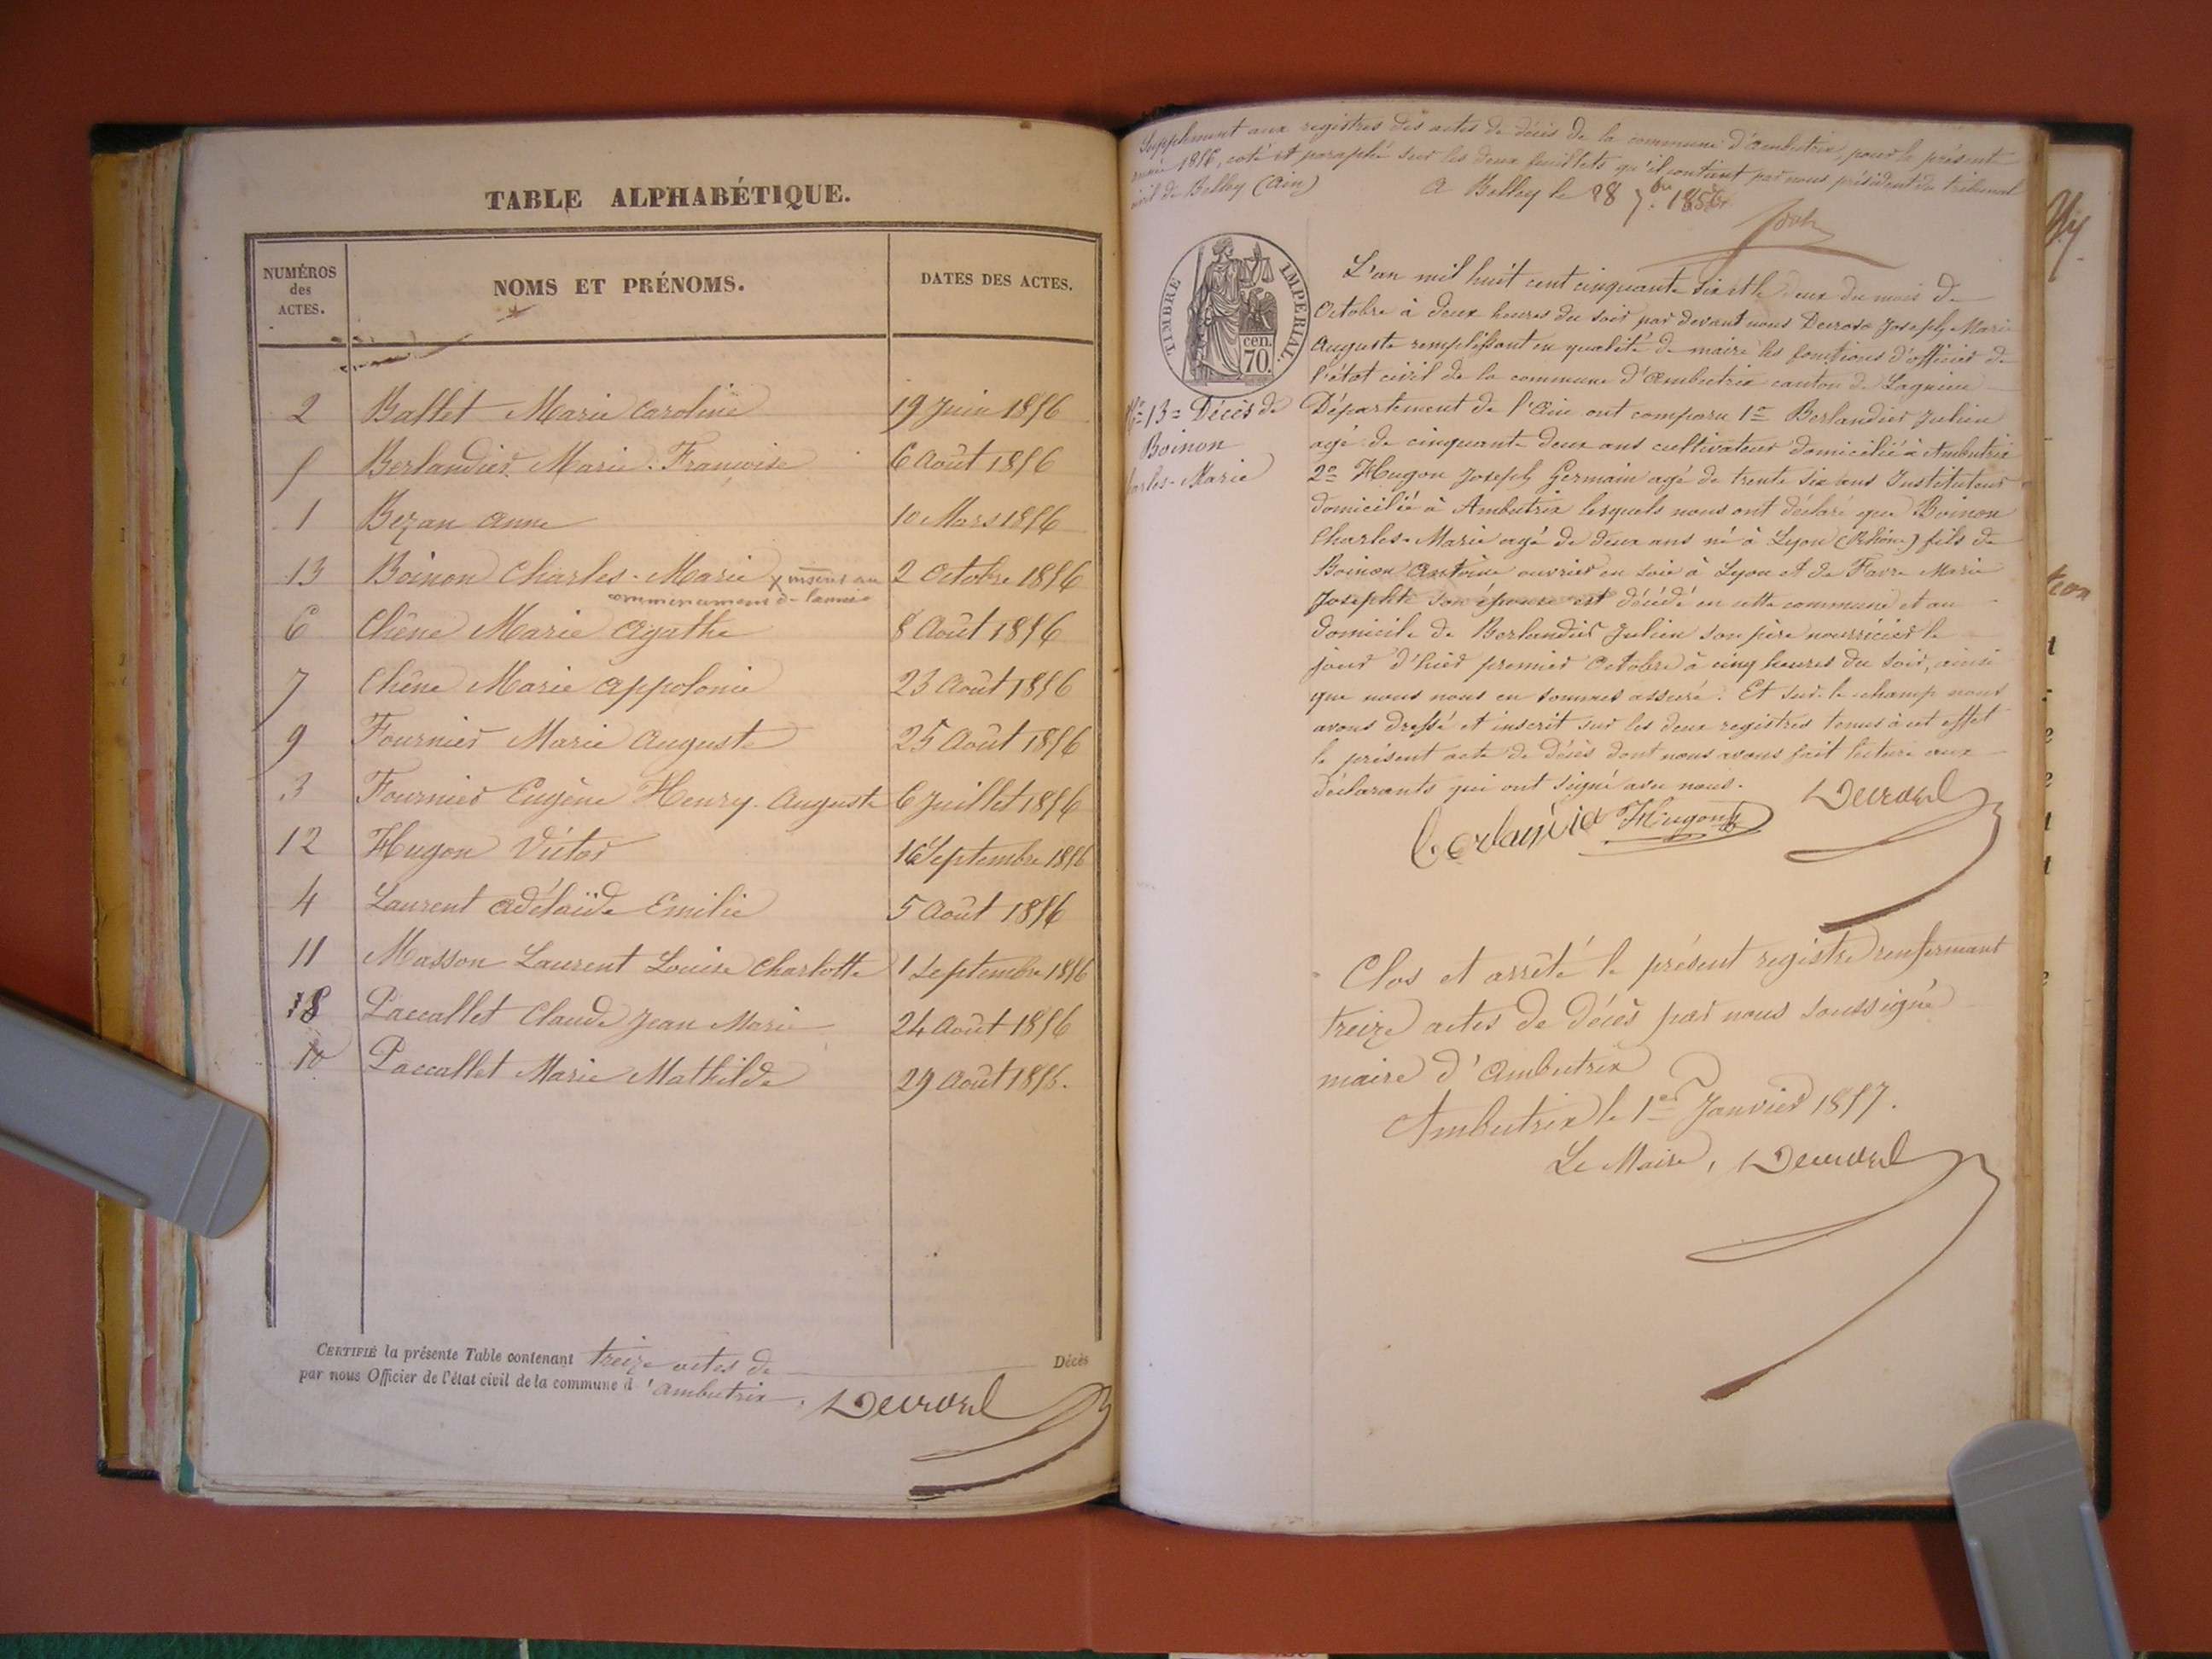 TABLE ALPHABÉTIQUE.
NUMÉROS des ACTES.
NOMS ET PRÉNOMS.
DATES DES ACTES.
2 Ballet Marie Caroline 19 Juin 1856
5 Berlandier Marie Françoise 6 Août 1856
1 Bezan Anne 10 Mars 1856
13 Boinon Charles-Marie 2 Octobre 1856
x inscrit au
commencement de l'année
6 Chêne Marie Agathe 8 Août 1856
7 Chêne Marie Appolonie 23 Août 1856
9 Fournier Marie Auguste 25 Août 1856
3 Fournier Eugène Henry Auguste 6 Juillet 1856
12 Hugon Victor 16 Septembre 1856
4 Laurent Adélaïde Emilie 5 Août 1856
11 Masson Laurent Louise Charlotte 1 Septembre 1856
8 Paccallet Claude Jean Marie 24 Août 1856
10 Paccallet Marie Mathilde 29 Août 1856.
CERTIFIÉ la présente Table contenant treize actes de Décès
par nous Officier de l'état civil de la commune d'Ambutrix.
Supplément aux registres des actes de décès de la commune d'Ambutrix, pour la présente
année 1856, coté et paraphé sur les deux feuillets qu'il contient par nous président du tribunal
civil de Belley (Ain) A Belley le 28 7bre 1856
TIMBRE IMPERIAL.
70 cen.
L'an mil huit cent cinquante six et le deux du mois de
Octobre à deux heures du soir par devant nous Joseph Marie
Auguste remplissant en qualité de maire les fonctions d'officier de
l'état civil de la commune d'Ambutrix canton de Lagnieu
N° 13 Décès de
Boinon
Charles-Marie
Département de l'Ain ont comparu 1° Berlandier Julien
agé de cinquante deux ans cultivateur domicilié à Ambutrix
2° Hugon Joseph Germain agé de trente six ans Instituteur
domicilié à Ambutrix lesquels nous ont déclaré que Boinon
Charles-Marie agé de deux ans né à Lyon (Rhône) fils de
Boinon Antoine ouvrier en soie à Lyon et de Favre Marie
Josephte son épouse est décédé en cette commune et au
domicile de Berlandier Julien son père nourricier le
jour d'hier premier Octobre à cinq heures du soir, ainsi
que nous nous en sommes assuré. Et sur le champ nous
avons dressé et inscrit sur les deux registres tenus à cet effet
le présent acte de décès dont nous avons fait lecture aux
déclarants qui ont signé avec nous.
Hugon
Clos et arrêté le présent registre renfermant
treize actes de décès par nous soussigné
maire d'Ambutrix
Ambutrix le 1er Janvier 1857.
Le Maire,